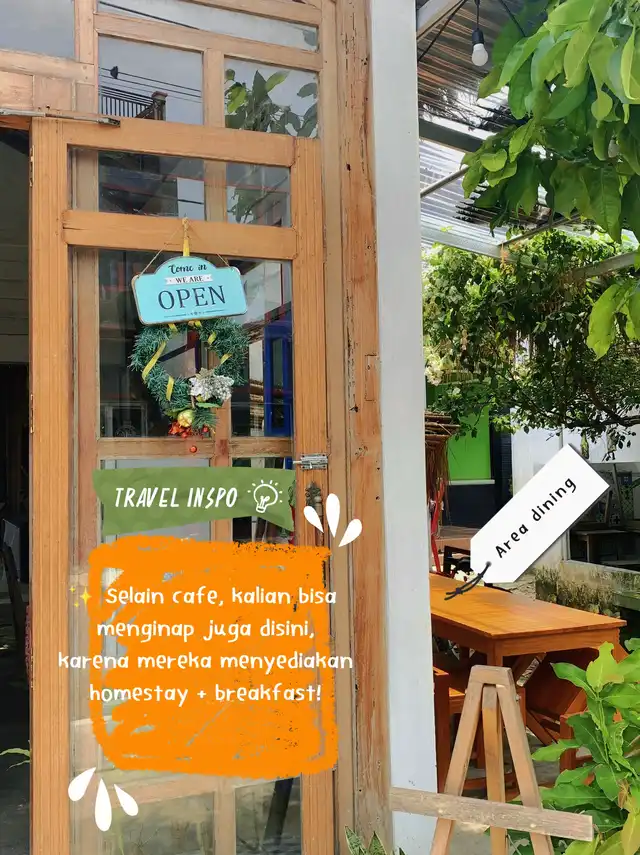 Come in
WE ARE
OPEN
TRAVEL INSPO
Area dining
✨ Selain cafe, kalian bisa
menginap juga disini,
karena mereka menyediakan
homestay + breakfast!